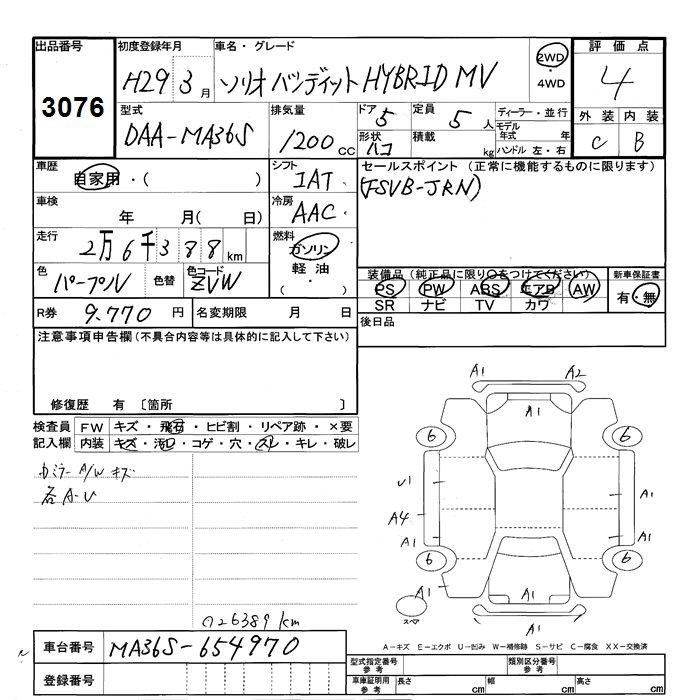 出品番号
3076
初度登録年月
H29 3月
車名・グレード
ソリオ バンディット HYBRID MV
2WD
・4WD
評価点
4
外装 内装
C B
型式
DAA-MA36S
排気量
1200cc
ドア 5
形状 ハコ
定員 5人
積載 kg
ディーラー・並行
モデル年式 年
ハンドル 左・右
車歴
自家用・( )
シフト
IAT
セールスポイント (正常に機能するものに限ります)
(FSVB-JRN)
車検
年 月( 日)
冷房
AAC
走行
2万6千388km
燃料
ガソリン
軽油
・
( )
色
パープル
色替
色コード
ZVW
装備品(純正品に限り○をつけてください)
PS PW ABS エアB AW
SR ナビ TV カワ
新車保証書
有・無
R券 9.770円
名変期限 月 日
後日品
注意事項申告欄(不具合内容等は具体的に記入して下さい)
修復歴 有 〔箇所 〕
検査員
記入欄
FW キズ・飛石・ヒビ割・リペア跡・×要
内装 キズ・汚れ・コゲ・穴・スレ・キレ・破レ
カミラー A/W キズ
各A-U
26389km
A1 A2
A1
6 6
U1 A1
A4
A1 A1
6 6
A1 A1 A1
A1
スペア
A-キズ E-エクボ U-凹み W-補修跡 S-サビ C-腐食 XX-交換済
車台番号 MA36S-654970
登録番号
型式指定番号 参考
類別区分番号 参考
車庫証明用 参考
長さ cm 幅 cm 高さ cm